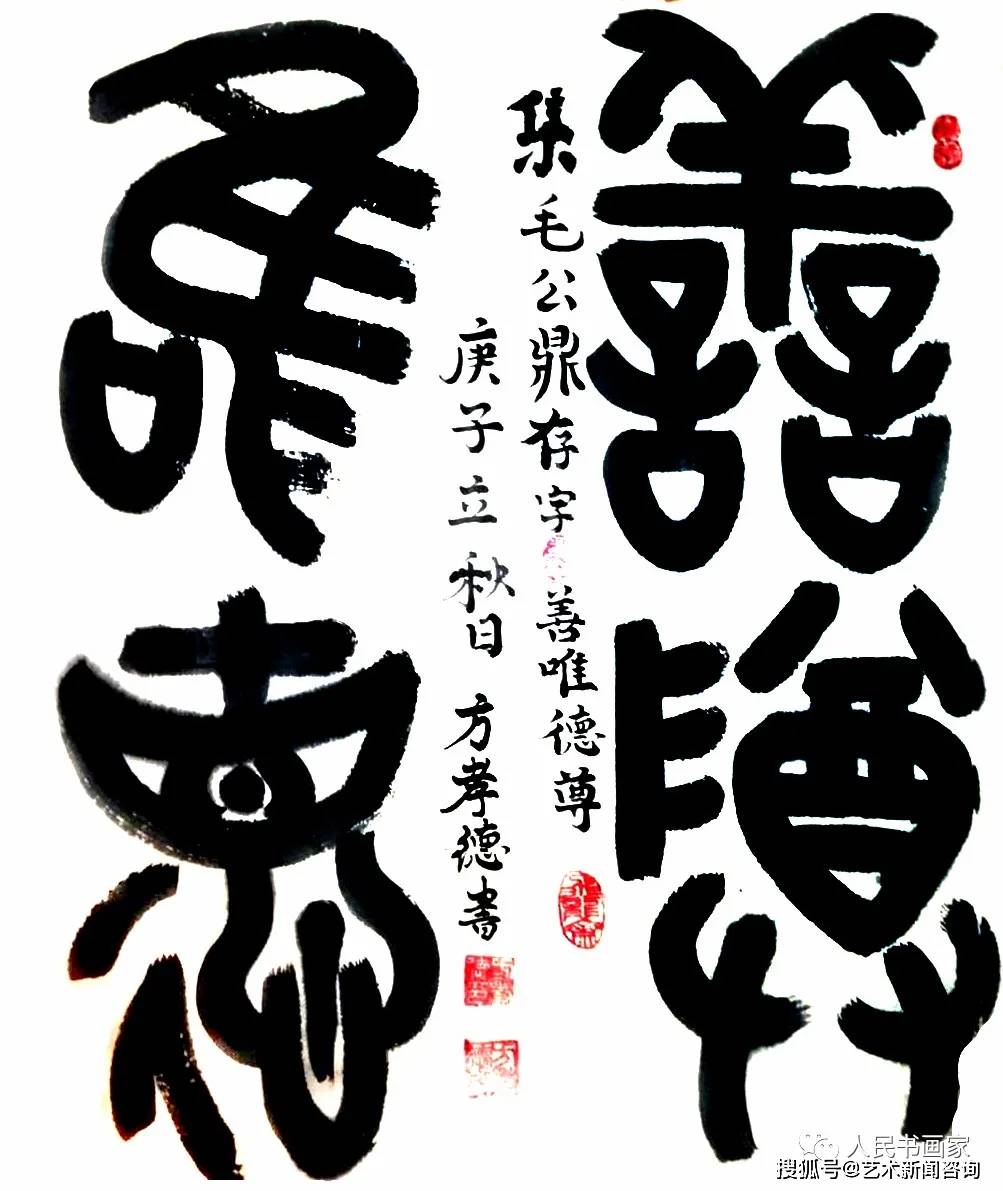 譱尊
集毛公鼎存字善唯德尊
庚子立秋日 方孝德書
唯德
人民书画家
搜狐号@艺术新闻咨询